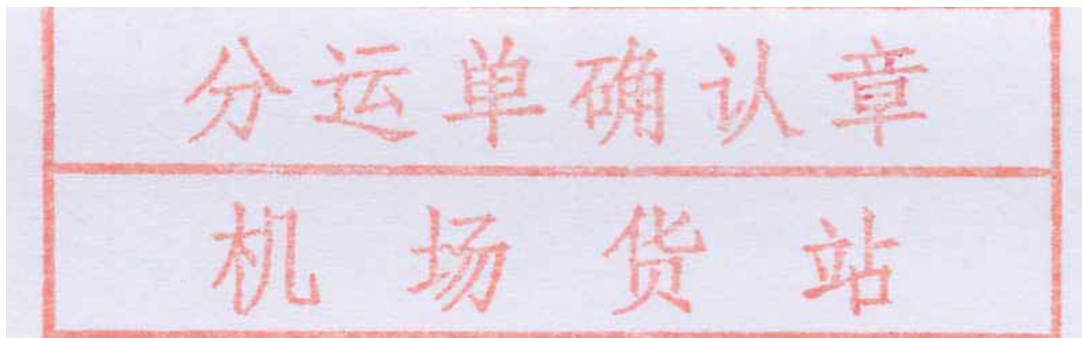 分运单确认章
机场货站